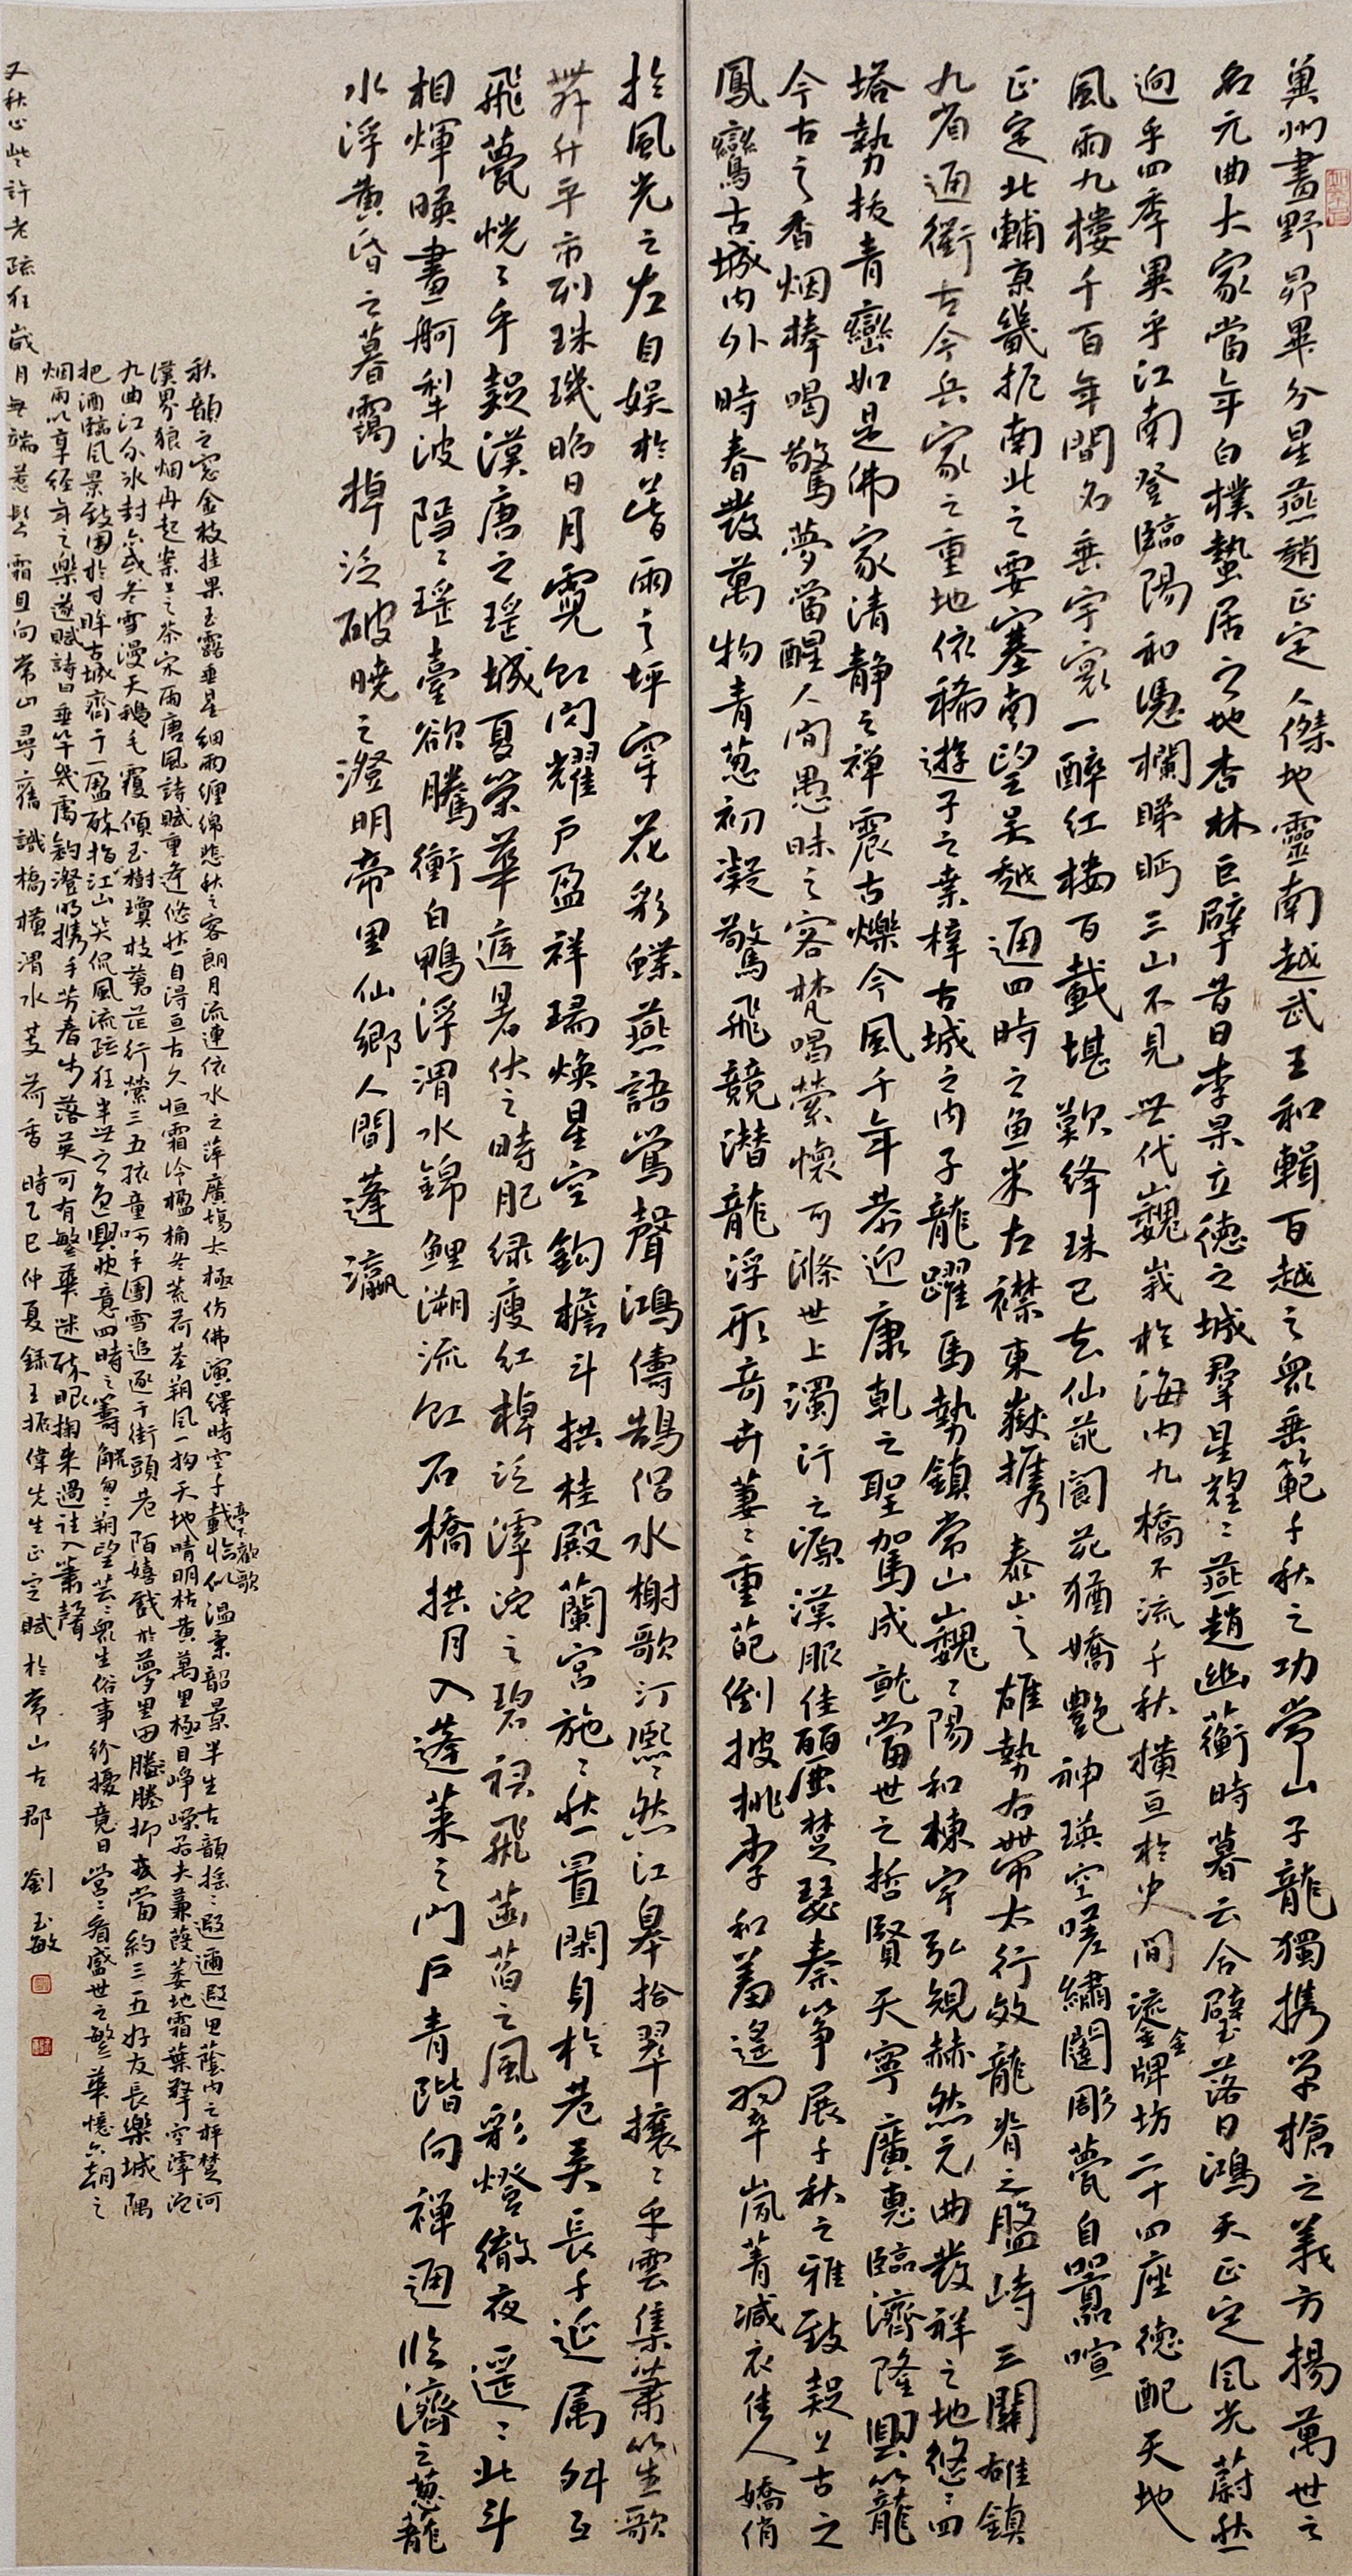 冀州畫野昴畢分星燕趙正定人傑地靈南越武王和輯百越之眾垂範千秋之功常山子龍獨携單槍之義方揚萬世之
名元曲大家當年白樸蟄居之地杏林巨擘昔日李杲立德之城羣星耀〻燕趙幽蘅時暮云合璧落日鴻天正定風光蔚然
迥乎四季異乎江南登臨陽和憑欄睇眄三山不見世代巍峩於海内九橋不流千秋橫亘於史間鎏金牌坊二十四座德配天地
風雨九樓千百年間名垂宇寰一醉紅樓百載堪歎绛珠已去仙葩閬苑猶嬌艷神瑛空嗟繡闥彫甍自囂喧
正定北輔京畿扼南北之要塞南望吴越通四時之魚米左襟東嶽攜泰山之雄勢右帶太行效龍脊之盤峙三關雄鎮
九省通衢古今兵家之重地依稀遊子之桑梓古城之内子龍躍馬勢鎮常山巍〻陽和棟宇弘規赫然元曲發祥之地悠〻四
塔勢拔青巒如是佛家清静之禅震古爍今風千年恭迎康乾之聖駕成就當世之哲賢天寧廣惠臨濟隆興篆籠
今古之香烟棒喝驚夢當醒人間愚昧之客梵唱縈懷可滌世上濁汙之源漢服佳麗楚瑟秦筝展千秋之雅致疑上古之
鳳鸞古城内外時春發萬物青葱初凝驚飛競潛龍浮形奇卉萋〻重葩倒披桃李和羞遙翠嵐菁减衣佳人嬌俏
於風光之左自娱於昔雨之坪穿花彩蝶燕語鶯聲鴻儔鵠侣水榭歌汀熙〻然江皋拾翠攘〻乎雲集簫笙歌
舞升平市列珠璣昭日月霓虹閃耀户盈祥瑞焕星空鈎檐斗拱桂殿蘭宮施〻然置閑身於巷美長千延属舛互
飛甍恍〻乎疑漢唐之瑤城夏榮華庭暑伏之時肥绿瘦红棹泛滹沱之碧裙飛菡萏之風彩燈徹夜遥〻北斗
相輝映畫舸犁波隱〻瑤臺欲騰衝白鴨浮渭水錦鲤溯流虹石橋拱月入蓬莱之門户青階向禅通临濟之葱蘢
水浮黄昏之暮靄棹泛破曉之澄明帝里仙鄉人間蓬瀛
秋韻之窓金枝挂果玉露垂星细雨缠绵悲秋之客朗月流連依水之萍廣塲太極仿佛演繹時空千載臨似温秉韶景半生古韻摇〻遐邇遐思蔭内之枰楚河
漢界狼烟再起案上之茶宋雨唐風詩賦重逢悠然自得亘古久恒霜冷楹桷冬荒荷茎朔風一拘天地晴明枯黄萬里極目峥嶸若夫蒹葭萎地霜葉擎空滹沱
九曲江分冰封六或冬雪漫天鵝毛覆傾玉樹瓊枝蒼茫行縈三五孩童呵手團雪追逐于街頭巷陌嬉戲於夢里田塍塍抑或當約三五好友長樂城隅
把酒臨風景致囿於寸眸古城齊于一盈醉指江山笑侃風流疏狂半世之逸興快意四時之籌觥匆〻朔望芸〻衆生俗事纷擾竟日營〻看盛世之繁華憶六朝之
烟雨以享经年之樂遂賦詩曰垂竿幾處釣澄明携手芳春步落英可有繁華迷醉眼掬来過往入蕭聲
又秋心些許老疏狂歲月無端惹髩霜且向常山尋舊識橋横渭水芰荷香時乙巳仲夏録王振偉先生正定賦於常山古郡 劉玉敏
亭下歡歌